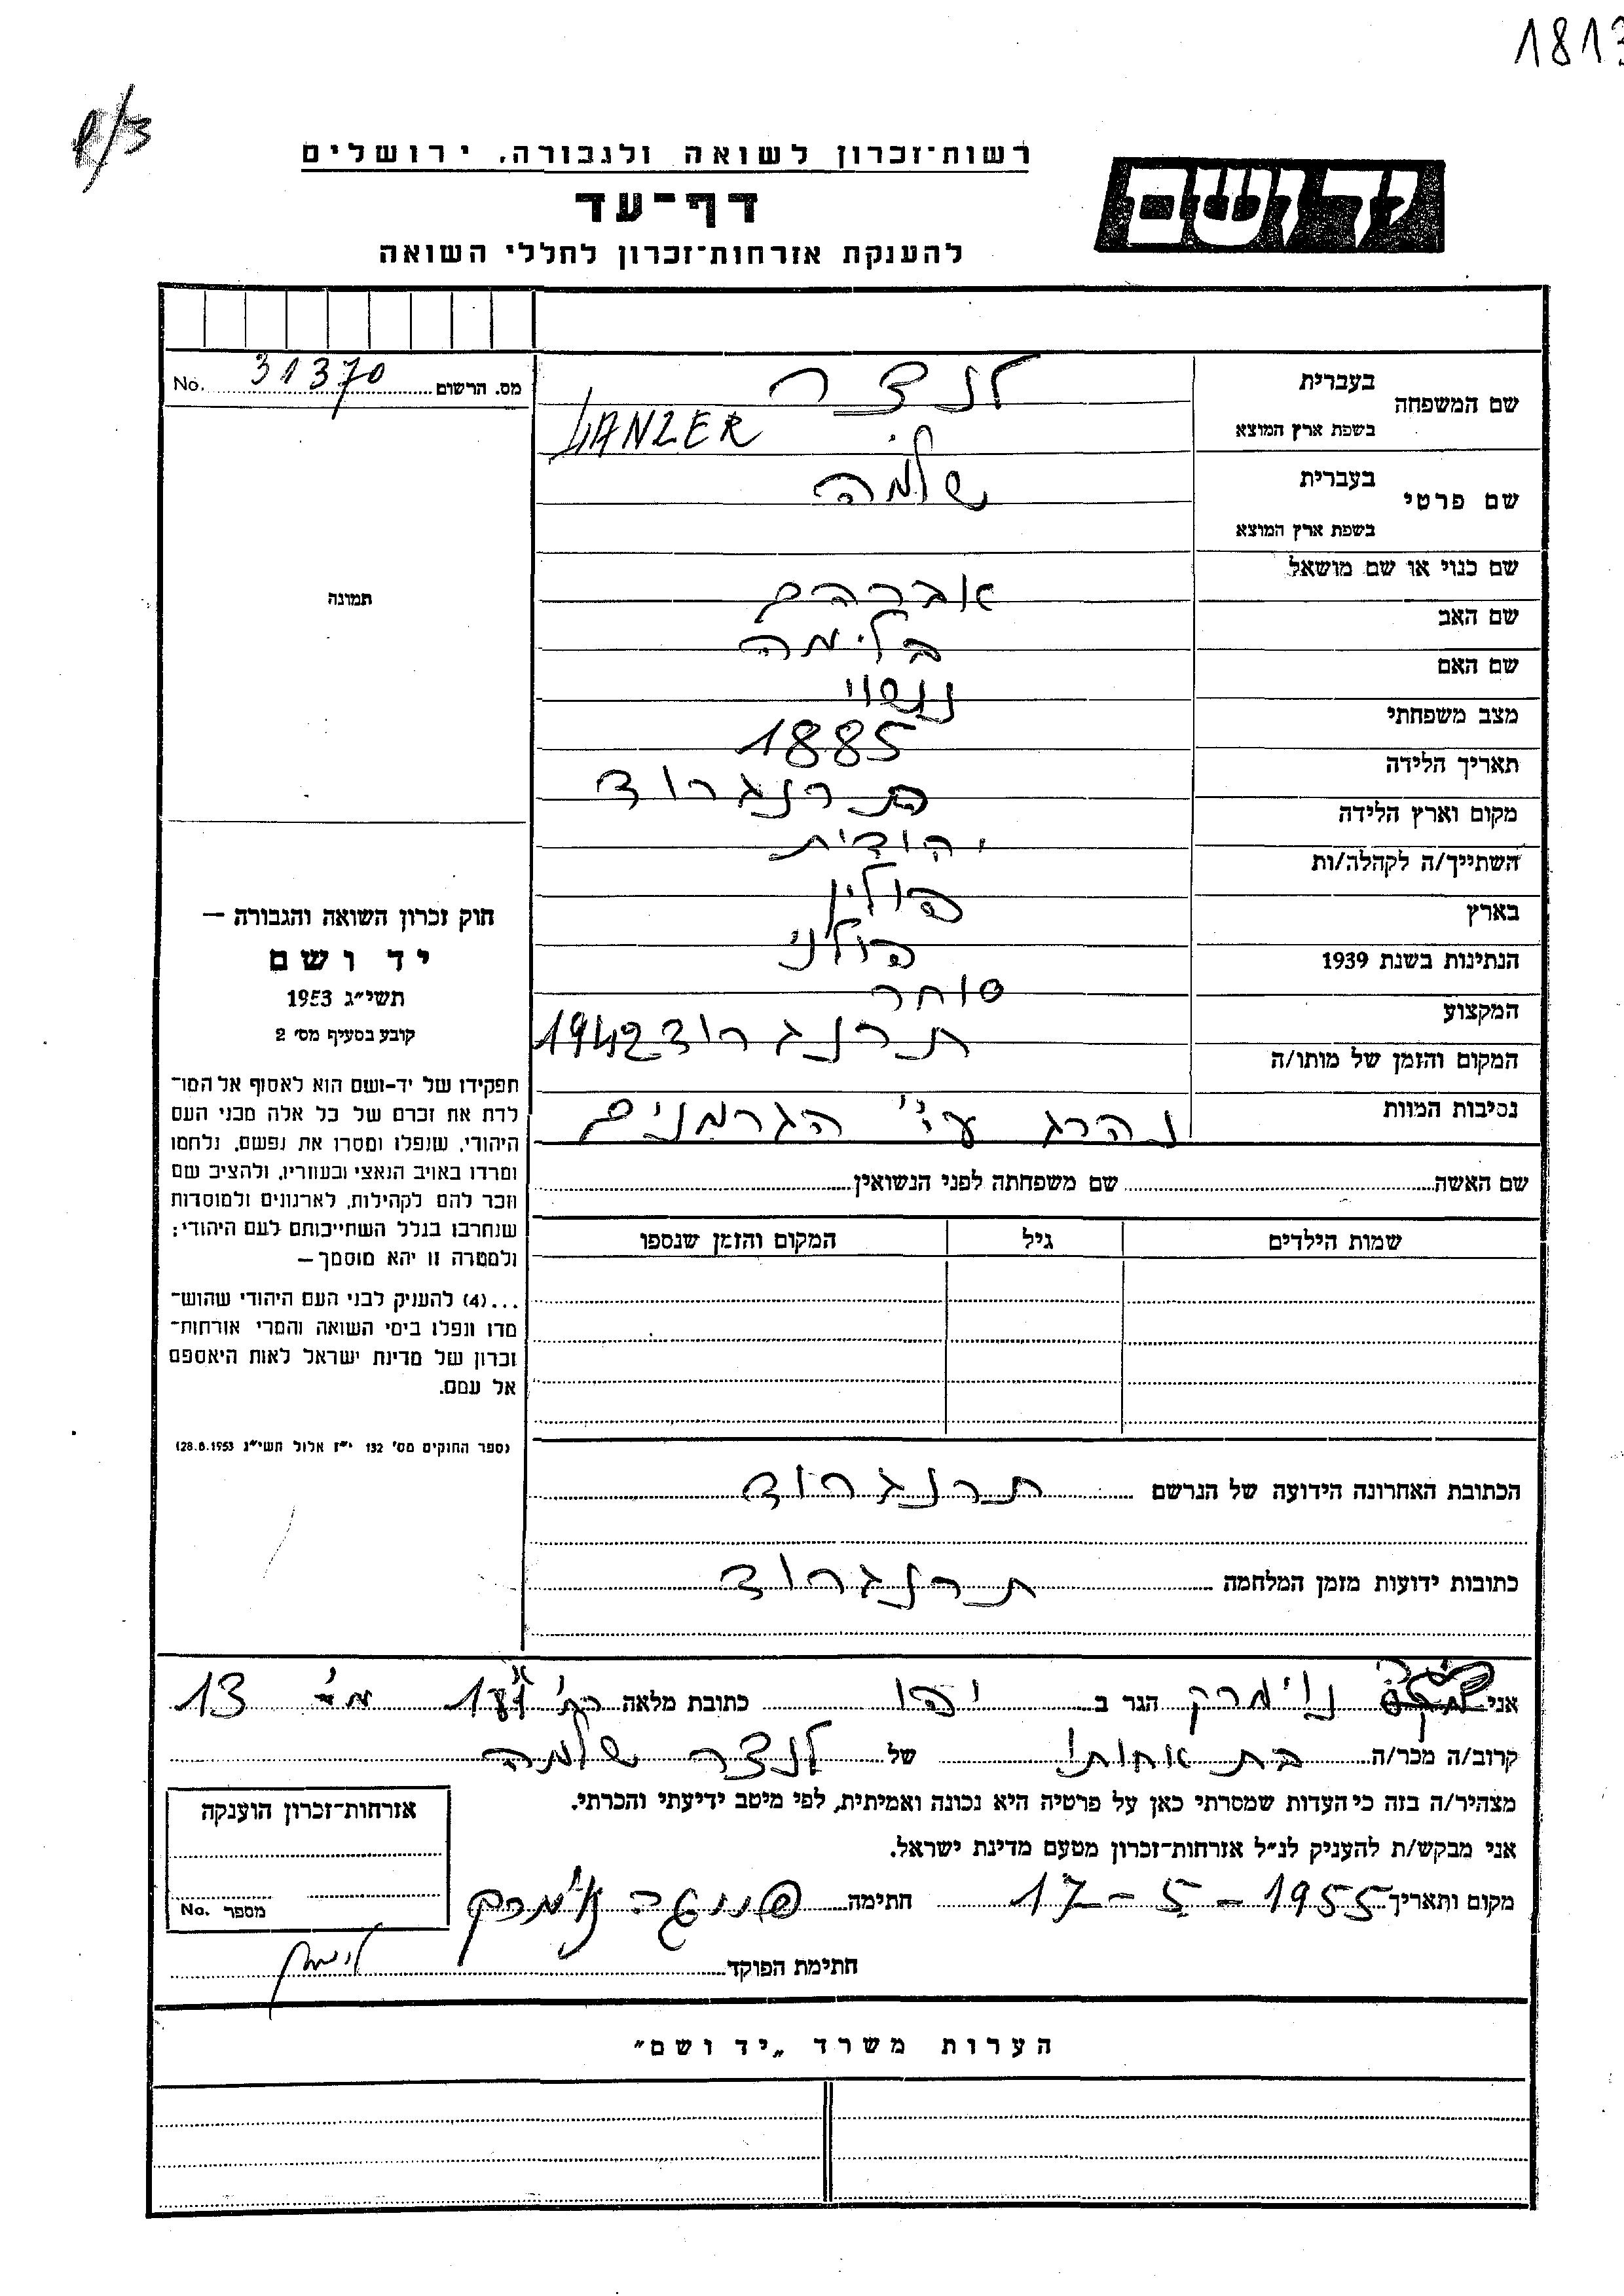 1813
רשות־זכרון לשואה ולגבורה, ירושלים
יד ושם
דף־עד
להענקת אזרחות־זכרון לחללי השואה
No. 31370 מס. הרשום
שם המשפחה בעברית לנצר
בשפת ארץ המוצא LANZER
שם פרטי בעברית שלמה
בשפת ארץ המוצא
שם כנוי או שם מושאל
שם האב אברהם
שם האם בלימה
מצב משפחתי נשוי
תאריך הלידה 1885
מקום וארץ הלידה תרנגרוד
השתייך/ה לקהלה/ות יהודית
בארץ פולין
הנתינות בשנת 1939 פולני
המקצוע סוחר
המקום והזמן של מותו/ה תרנגרוד 1942
נסיבות המוות נהרג ע״י הגרמנים
תמונה
חוק זכרון השואה והגבורה —
יד ושם
תשי״ג 1953
קובע בסעיף מס׳ 2
תפקידו של יד-ושם הוא לאסוף אל המו־
לדת את זכרם של כל אלה מבני העם
היהודי, שנפלו ומסרו את נפשם, נלחמו
ומרדו באויב הנאצי ובעוזריו, ולהציב שם
וזכר להם לקהילות, לארגונים ולמוסדות
שנחרבו בגלל השתייכותם לעם היהודי;
ולמטרה זו יהא מוסמך —
...(4) להעניק לבני העם היהודי שהוש־
מדו ונפלו בימי השואה והמרי אזרחות־
זכרון של מדינת ישראל לאות היאספם
אל עמם.
(ספר החוקים מס׳ 132 י״ז אלול תשי״ג 28.8.1953)
שם האשה שם משפחתה לפני הנשואין
שמות הילדים גיל המקום והזמן שנספו
הכתובת האחרונה הידועה של הנרשם תרנגרוד
כתובות ידועות מזמן המלחמה תרנגרוד
אני נוימרק הגר ב יפו כתובת מלאה רח׳ 13
קרוב/ה מכר/ה בת אחותו של לנצר שלמה
מצהיר/ה בזה כי העדות שמסרתי כאן על פרטיה היא נכונה ואמיתית, לפי מיטב ידיעתי והכרתי.
אני מבקש/ת להעניק לנ״ל אזרחות־זכרון מטעם מדינת ישראל.
מקום ותאריך 17-5-1955 חתימה נוימרק
חתימת הפוקד
אזרחות־זכרון הוענקה
מספר No.
הערות משרד „יד ושם״